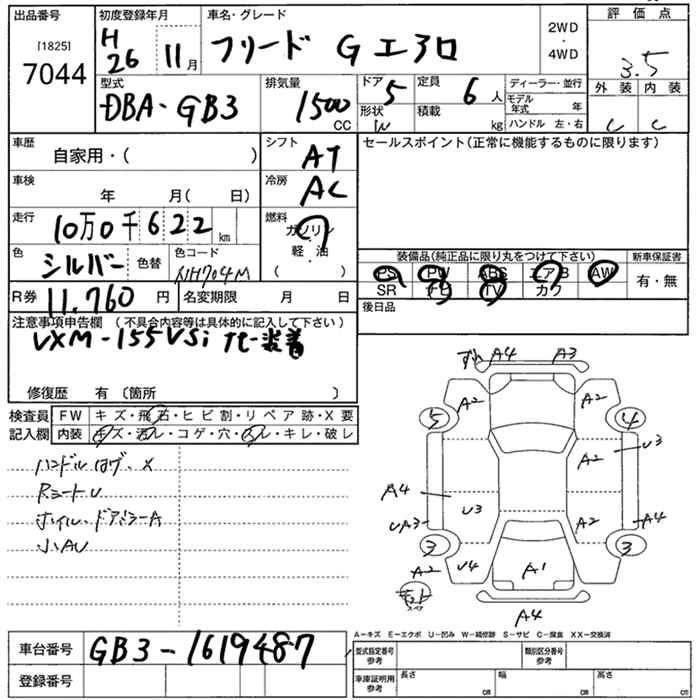 出品番号
[1825]
7044
初度登録年月
H 26 11月
車名・グレード
フリード G エアロ
2WD
・
4WD
評価点
3.5
外装 内装
C C
型式
DBA-GB3
排気量
1500 CC
ドア 5
形状 W
定員 6人
積載 kg
ディーラー・並行
モデル年式 年
ハンドル 左・右
車歴
自家用・( )
シフト
AT
セールスポイント(正常に機能するものに限ります)
車検
年 月( 日)
冷房
AC
走行
10万0千622km
燃料
ガソリン
・
軽・油
( )
色
シルバー
色替
色コード
NH704M
装備品(純正品に限り丸をつけて下さい)
新車保証書
PS PW ABS エアB AW
SR ナビ TV カワ
有・無
R券 11,760 円
名変期限 月 日
後日品
注意事項申告欄 (不具合内容等は具体的に記入して下さい)
VXM-155VSi ナビ装着
修復歴 有 〔箇所 〕
検査員
記入欄
FW キズ・飛石・ヒビ割・リペア跡・X要
内装 キズ・汚レ・コゲ・穴・スレ・キレ・破レ
ハンドル
RシートU
ホイル、ドアミラーA
小AU
A4 A3
A2 A2
5 4
U3
A2
A4
U3
UA3
A2
A4
3 3
A2
U4
A1
スペア
A4
A-キズ E-エクボ U-凹み W-補修跡 S-サビ C-腐食 XX-交換済
車台番号
GB3-1619487
登録番号
型式指定番号
参考
類別区分番号
参考
車庫証明用
参考
長さ cm
幅 cm
高さ cm